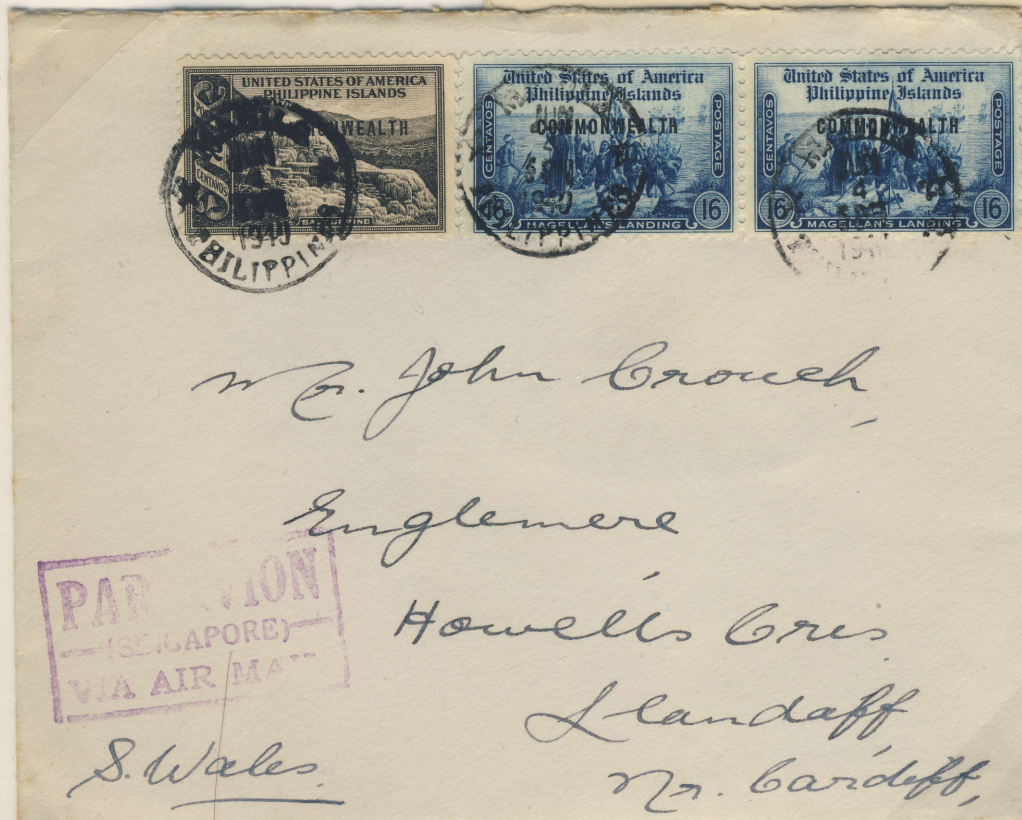 UNITED STATES OF AMERICA
PHILIPPINE ISLANDS
COMMONWEALTH
CENTAVOS
PHILIPPINES
1940
United States of America
Philippine Islands
COMMONWEALTH
CENTAVOS
POSTAGE
16 16
MAGELLAN'S LANDING
JUN
1940
PHILIPPINES
United States of America
Philippine Islands
COMMONWEALTH
CENTAVOS
POSTAGE
16 16
MAGELLAN'S LANDING
JUN
4
Mr. John Crouch,
Englemere
Howells Cres.
Llandaff,
Nr. Cardiff,
S. Wales.
PAR AVION
(SINGAPORE)
VIA AIR MAIL